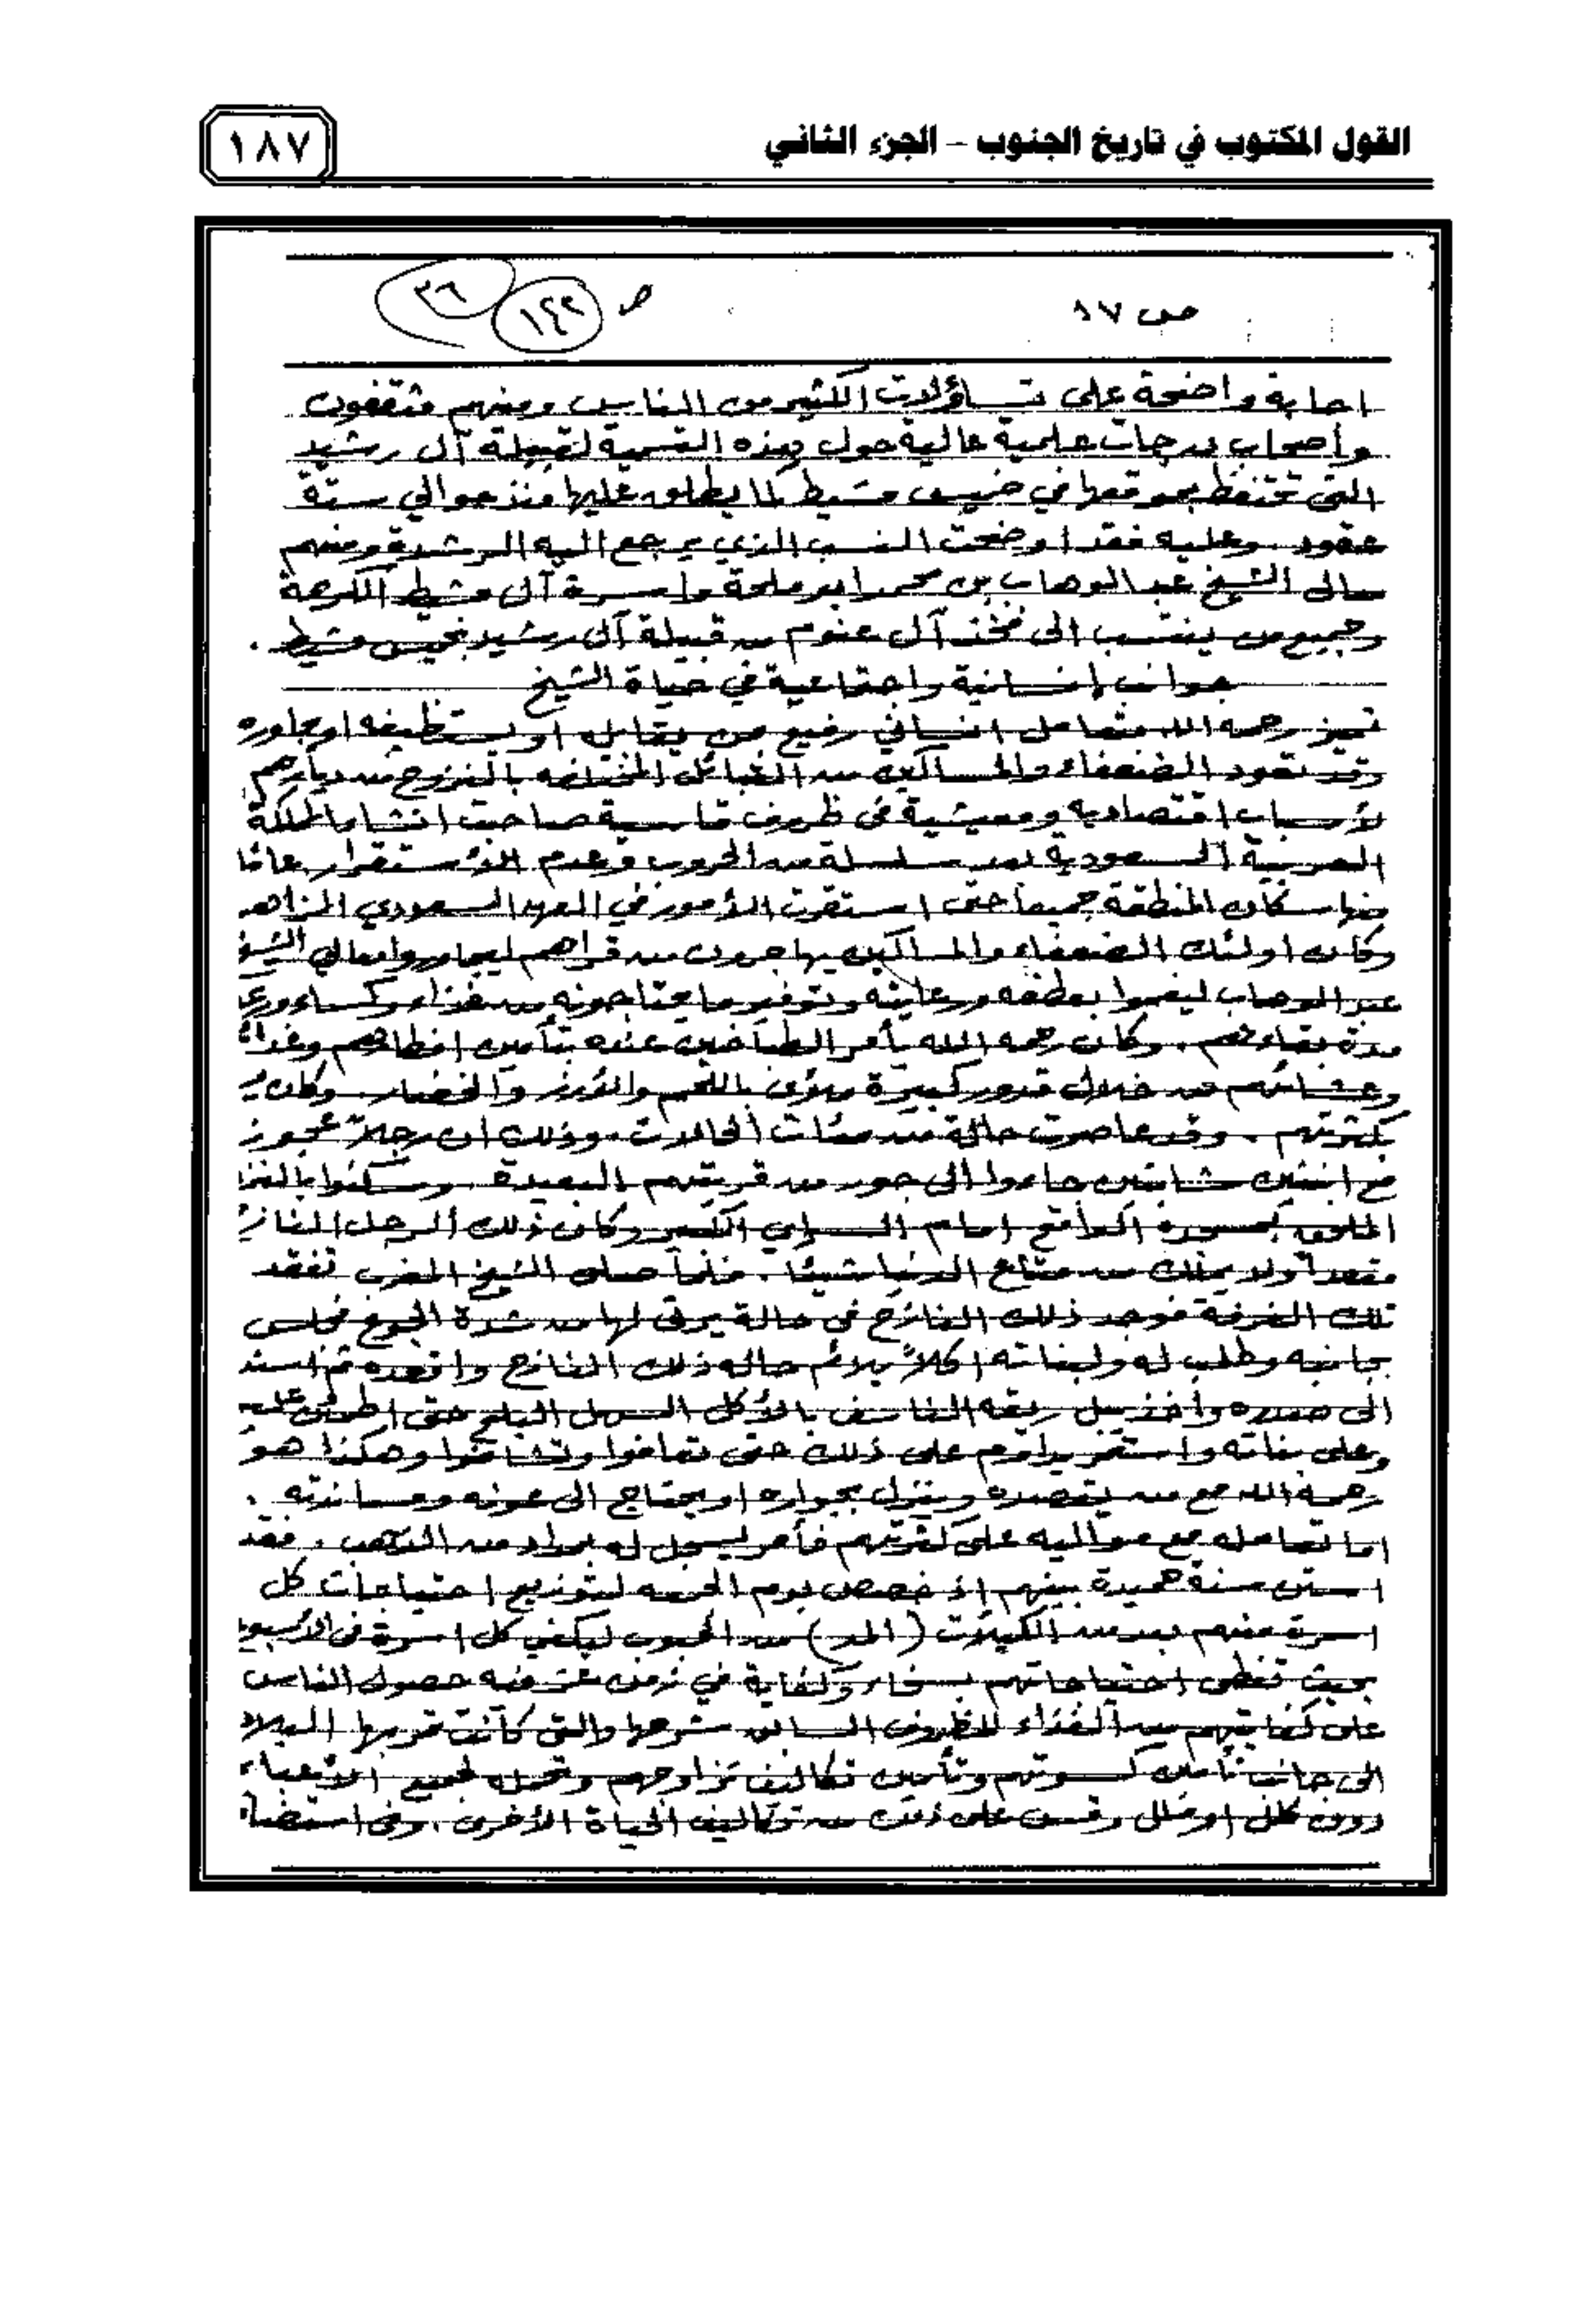 القول المكتوب في تاريخ الجنوب – الجزء الثاني
١٨٧
ص ١٧
ص ١٤٢ ٣٦
اجابة واضحة على تساؤلات الكثير من الناس ومنهم مثقفون
وأصحاب درجات علمية عالية حول هذه التسمية لقبيلة آل رشيد
التي تحتفظ بموقعها في خميس مشيط كما يطلق عليها منذ حوالي ستة
عقود . وعليه فقد اوضحت النسب الذي يرجع اليه الرشدة ومنهم
معالي الشيخ عبد الوهاب بن محمد ابو ملحة واسرة آل مشيط الكريمة
وجميع من ينتسب الى فخذ آل عنوم من قبيلة آل رشيد بخميس مشيط .
جوانب إنسانية واجتماعية في حياة الشيخ
تميز رحمه الله بتعامل انساني رفيع من يقابله او يستظيفه او جاوره
وقد تعود الضعفاء والمساكين من القبائل المختلفه بالنزوح من ديارهم
لأسباب اقتصاديه ومعيشية في ظروف قاسية صاحبت انشاء المملكة
العربية السعودية بعد سلسلة من الحروب وعدم الأستقرار عانا
منها سكان المنطقة جميعاً حتى استقرت الأمور في العهد السعودي الزاهر
وكان اولئك الضعفاء والمساكين يهاجرون من قراهم ليجاوروا معالي الشيخ
عبد الوهاب لينعموا بعطفه ورعايته وتوفير ما يحتاجونه من غذاء وكساء
مدة بقاءهم . وكان رحمه الله يأمر الطباخين عنده بتأمين افطارهم وغداء
وعشائهم من خلال قدور كبيرة ملأى باللحم والأرز والخضار . وكان
بكثرتهم . وقد عاصرت حالة من مئات الحالات . وذلك ان رجلاً عجوز
مع ابنتين شابتين جاءوا الى جوره من قريتهم البعيدة وسكنوا
الملحق امام السراي الكبير وكان ذلك الرجل النازح
مقعداً ولا يملك من متاع الدنيا شيئاً . فلما صلى الشيخ المغرب تفقد
تلك الغرفة فوجد ذلك النازح في حالة يرثى لها من شدة الجوع فجلس
بجانبه وطلب له ولبناته اكلاً يلائم حاله ذلك النازح واقعده ثم اسند
الى صدره وأخذ يبل ريقه الناشف بالأكل السهل البلع حتى اطمئن عليه
وعلى بناته واستمر يداوم على ذلك حتى تعافوا وهكذا هو
رحمة الله مع من يقصده وينزل بجواره او يحتاج الى عونه ومساندته .
اما تعامله مع مواليه على كثرتهم فأمر ليسجل له بمداد من الذهب . فقد
استن سنة حميدة بينهم إذ خصص يوم الجمعه لتوزيع احتياجات كل
اسرة منهم بعدد من الكيلات ( المد ) من الحبوب ليكفي كل اسرة في الأسبوع
بحيث تغطى احتياجاتهم بسخاء وكفاية في زمن عز فيه حصول الناس
على كفايتهم من الغذاء للظروف السابق شرحها والتي كانت تمر بها البلاد
الى جانب تأمين كسوتهم وتأمين تكاليف تزاوجهم وتحمل جميع الأعباء
دون كلل او ملل وقس على ذلك من تكاليف الحياة الأخرى . وفى